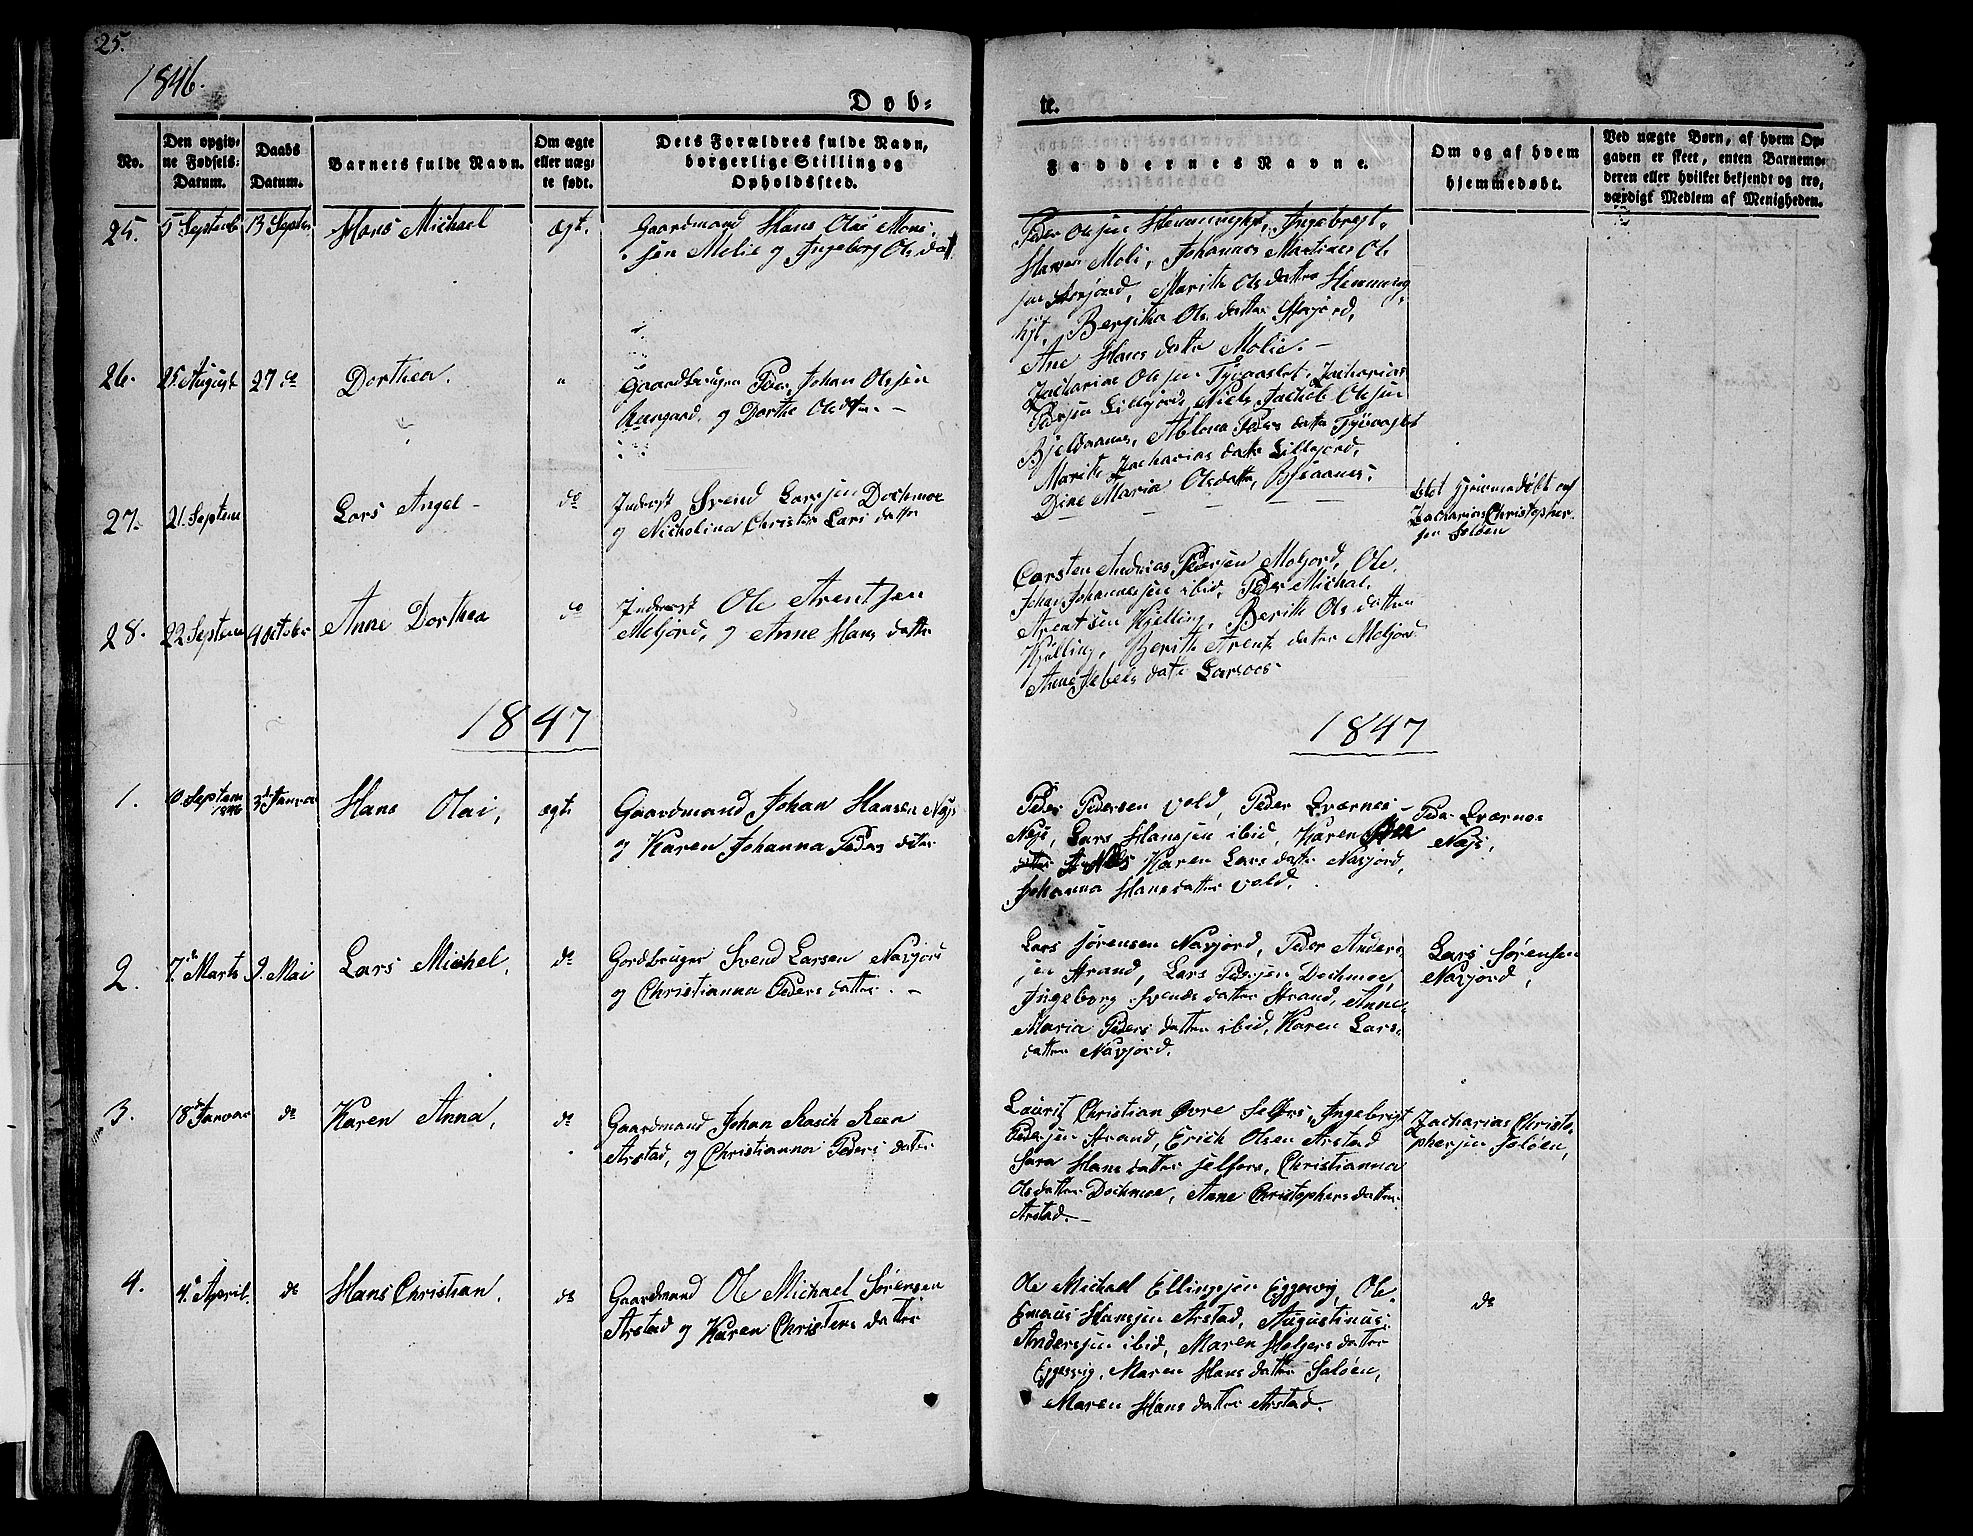 25.
1846.
Døb-
te.
No.
Den opgiv-
ne Fødsels-
Datum.
Daabs
Datum.
Barnets fulde Navn.
Om ægte
eller næg-
te født.
Dets Forældres fulde Navn,
borgerlige Stilling og
Opholdssted.
Faddernes Navne.
Om og af hvem
hjemmedøbt.
Ved uægte Børn, af hvem Op-
gaven er skeet, enten Barnemo-
deren eller hvilket bekjendt og tro-
værdigt Medlem af Menigheden.
25.
5 Septemb
13 Septem
Hans Michael
ægt.
Gaardmand Hans Olai Moni-
sen Molie og Ingeborg Olsdat
Peder Olsen Hemminghyt, Ingebrigt
Hansen Moli, Johannes Martines Ol-
sen Storjord, Marith Olsdatter Hemming
hyt, Bergitha Olsdatter Storjord,
Ane Hansdatter Molie.-
26.
25 August
27 do
Dorthea.
"
Gaardbruger Peder Johan Olsen
og Dorthe Olsdatter. -
Zacharias Olsen Tyvaaslet, Zacharias
Pedersen Lillejord, Niels Jachob Olsen
Bjeldaanes, Ablona Peders datter Tyvaaslet
Marith Zacharias datter Lillejord,
Dine Maria Olsdatter,
27.
21 Septem
Lars Angel -
do
Inderst Svend Larsen Dochmoe
og Nicholina Christin Lars datter
blot hjemmedøbt af
Zacharias Christopher-
sen Soløen
28.
22 Septem
4 October
Anne Dorthea
do
Inderst Ole Arentsen
Moljord, og Anne Hans datter
Carsten Andreas Pedersen Moljord, Ole
Johan Johannesen ibid, Peder Michal
Arentsen Kjelling, Berith Ols datter
Kjelling, Berith Arents datter Moljord
Anne datter Larsoes
1847
1847
1.
10 Septem
1846
3de Januar
Hans Olai,
ægte
Gaardmand Johan Hansen Næs
og Karen Johanna Peders datter
Peder Pedersen Vold, Peder Qværnes
Næs, Lars Hansen ibid, Karen
Karen Lars datter Navjord,
Johanna Hansdatter Vold.
Peder Qværnes
Næs,
2.
7de Marts
9. Mai
Lars Michel,
do
Gordbruger Svend Larsen Navjord
og Christianna Peders datter. -
Lars Sørensen Navjord, Peder Anders-
sen Strand, Lars Pedersen Dochmoe,
Ingeborg Svends datter Strand, Anne
Maria Peders datter ibid, Karen Lars-
datter Navjord.
Lars Sørensen
Navjord,
3.
18de Januar
do
Karen Anna,
do
Gaardmand Johan Rasch Keen
Arstad, og Christianna Peders datter
Laurits Christian Øvre Selfors, Ingebrigt
Pedersen Strand, Erich Olsen Arstad
Sara Hans datter Selfors, Christianna
Olsdatter Dochmoe, Anne Christophers datter
Arstad.-
Zacharias Christo-
phersen Soløen,
4.
4de April.
do
Hans Christian.
do
Gaardmand Ole Michael Sørensen
Arstad og Karen Christens datter
Ole Michael Ellingsen Eggesvig, Ole
Emaus Hansen Arstad, Augustinus
Andersen ibid, Maren Holgers datter
Eggesvig, Maren Hans datter Soløen,
Maren Hans datter Arstad.
do